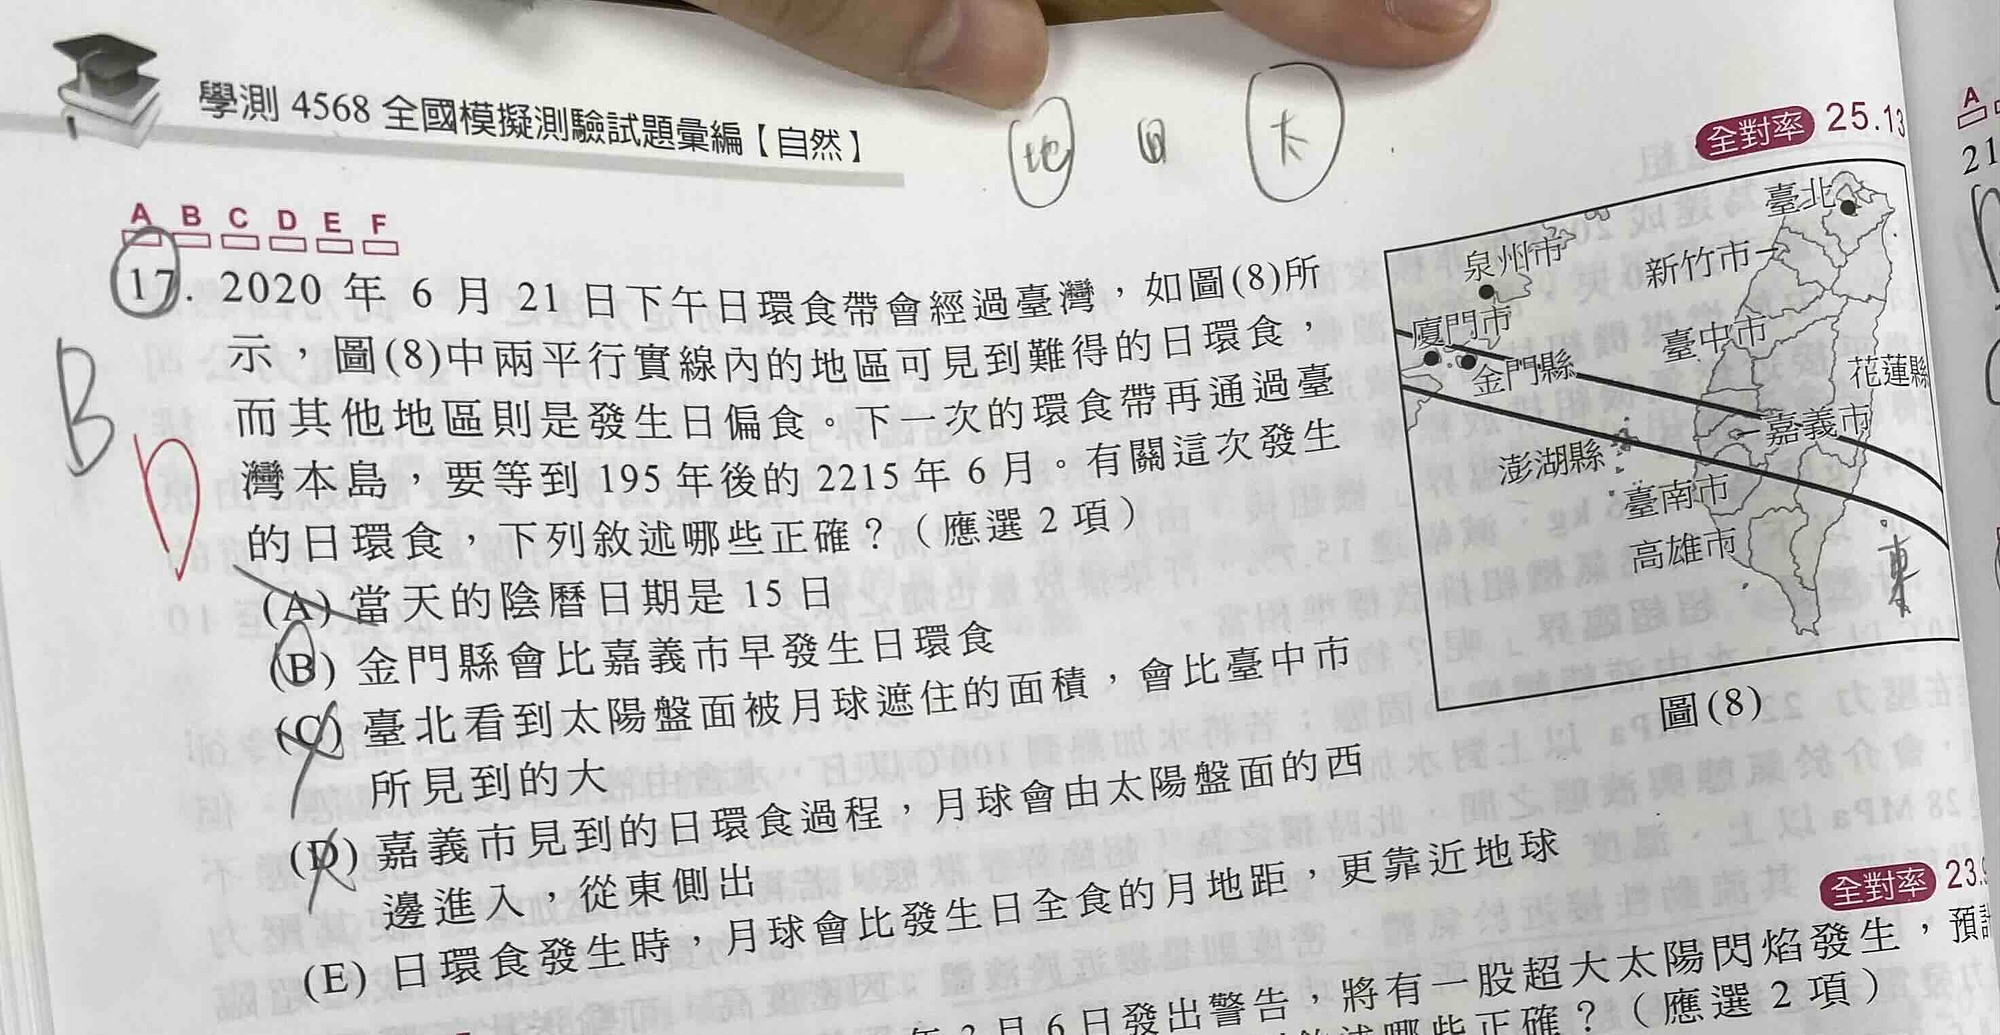 學測 4568 全國模擬測驗試題彙編【自然】
地 月 太
全對率 25.13
A B C D E F
17. 2020 年 6 月 21 日下午日環食帶會經過臺灣,如圖(8)所
示,圖(8)中兩平行實線內的地區可見到難得的日環食,
而其他地區則是發生日偏食。下一次的環食帶再通過臺
灣本島,要等到 195 年後的 2215 年 6 月。有關這次發生
的日環食,下列敘述哪些正確?(應選 2 項)
(A) 當天的陰曆日期是 15 日
(B) 金門縣會比嘉義市早發生日環食
(C) 臺北看到太陽盤面被月球遮住的面積,會比臺中市
所見到的大
(D) 嘉義市見到的日環食過程,月球會由太陽盤面的西
邊進入,從東側出
(E) 日環食發生時,月球會比發生日全食的月地距,更靠近地球
B
D
臺北
泉州市
新竹市
廈門市
臺中市
金門縣
花蓮縣
嘉義市
澎湖縣
臺南市
高雄市
東
圖(8)
全對率 23.
月 6 日發出警告,將有一股超大太陽閃焰發生,預
哪些正確?(應選 2 項)
A
21